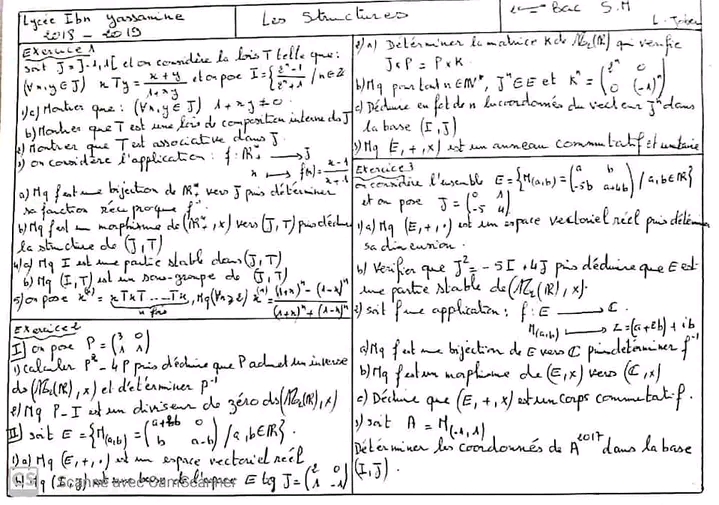 Lycée Ibn Yassamine
2018 - 2019
Les Structures
Bac S.M
Exercice 1
soit J = ]-1,1[ et on considère la lois T telle que :
(∀x,y ∈ J) x T y = (x+y)/(1+xy) et on pose I = { (2^n - 1)/(2^n + 1) / n ∈ Z
1) a) Montrer que : (∀x,y ∈ J) 1 + xy ≠ 0.
b) Montrer que T est une lois de composition interne ds J
2) Montrer que T est associative dans J.
3) on considère l'application : f : ℝ*₊ → J
x → f(x) = (x-1)/(x+1)
a) Mq f est une bijection de ℝ*₊ vers J puis déterminer
sa fonction réciproque f⁻¹
b) Mq f est un morphisme de (ℝ*₊, x) vers (J, T) puis déduire
la structure de (J, T)
4) a) Mq I est une partie stable dans (J, T)
b) Mq (I, T) est un sous-groupe de (J, T)
5) on pose x^(n) = x T x T ... T x, Mq (∀n ≥ 2) x^(n) = ((1+x)^n - (1-x)^n)/((1+x)^n + (1-x)^n)
n fois
Exercice 2
I) on pose P = (3 0
1 1)
1) calculer P² - 4P puis déduire que P admet un inverse
ds (M₂(ℝ), x) et déterminer P⁻¹
2) Mq P - I est un diviseur de zéro ds (M₂(ℝ), x)
II) soit E = { M(a,b) = (a+2b 0
b a-b) / a,b ∈ ℝ }.
1) a) Mq (E, +, .) est un espace vectoriel réel
b) Mq (I, J) est une base de l'espace E tq J = (2 0
1 -1)
CS Scanné avec CamScanner
2) a) Déterminer la matrice K de M₂(ℝ) qui vérifie
J x P = P x K.
b) Mq pour tout n ∈ ℕ*, J^n ∈ E et K^n = (2^n 0
0 (-1)^n)
c) Déduire en fct de n les coordonnés du vecteur J^n dans
la base (I, J)
3) Mq (E, +, x) est un anneau commutatif et unitaire
Exercice 3
on considère l'ensemble E = { M(a,b) = (a b
-5b a+4b) / a,b ∈ ℝ }
et on pose J = (0 1
-5 4)
1) a) Mq (E, +, .) est un espace vectoriel réel puis
sa dimension.
b) Vérifier que J² = -5I + 4J puis déduire que E est
une partie stable de (M₂(ℝ), x).
2) soit f une application : f : E → ℂ.
M(a,b) → Z = (a+2b) + ib
a) Mq f est une bijection de E vers ℂ puis déterminer f⁻¹
b) Mq f est un morphisme de (E, x) vers (ℂ, x)
c) Déduire que (E, +, x) est un corps commutatif.
3) soit A = M(-1,1)
Déterminer les coordonnés de A^2017 dans la base
(I, J).